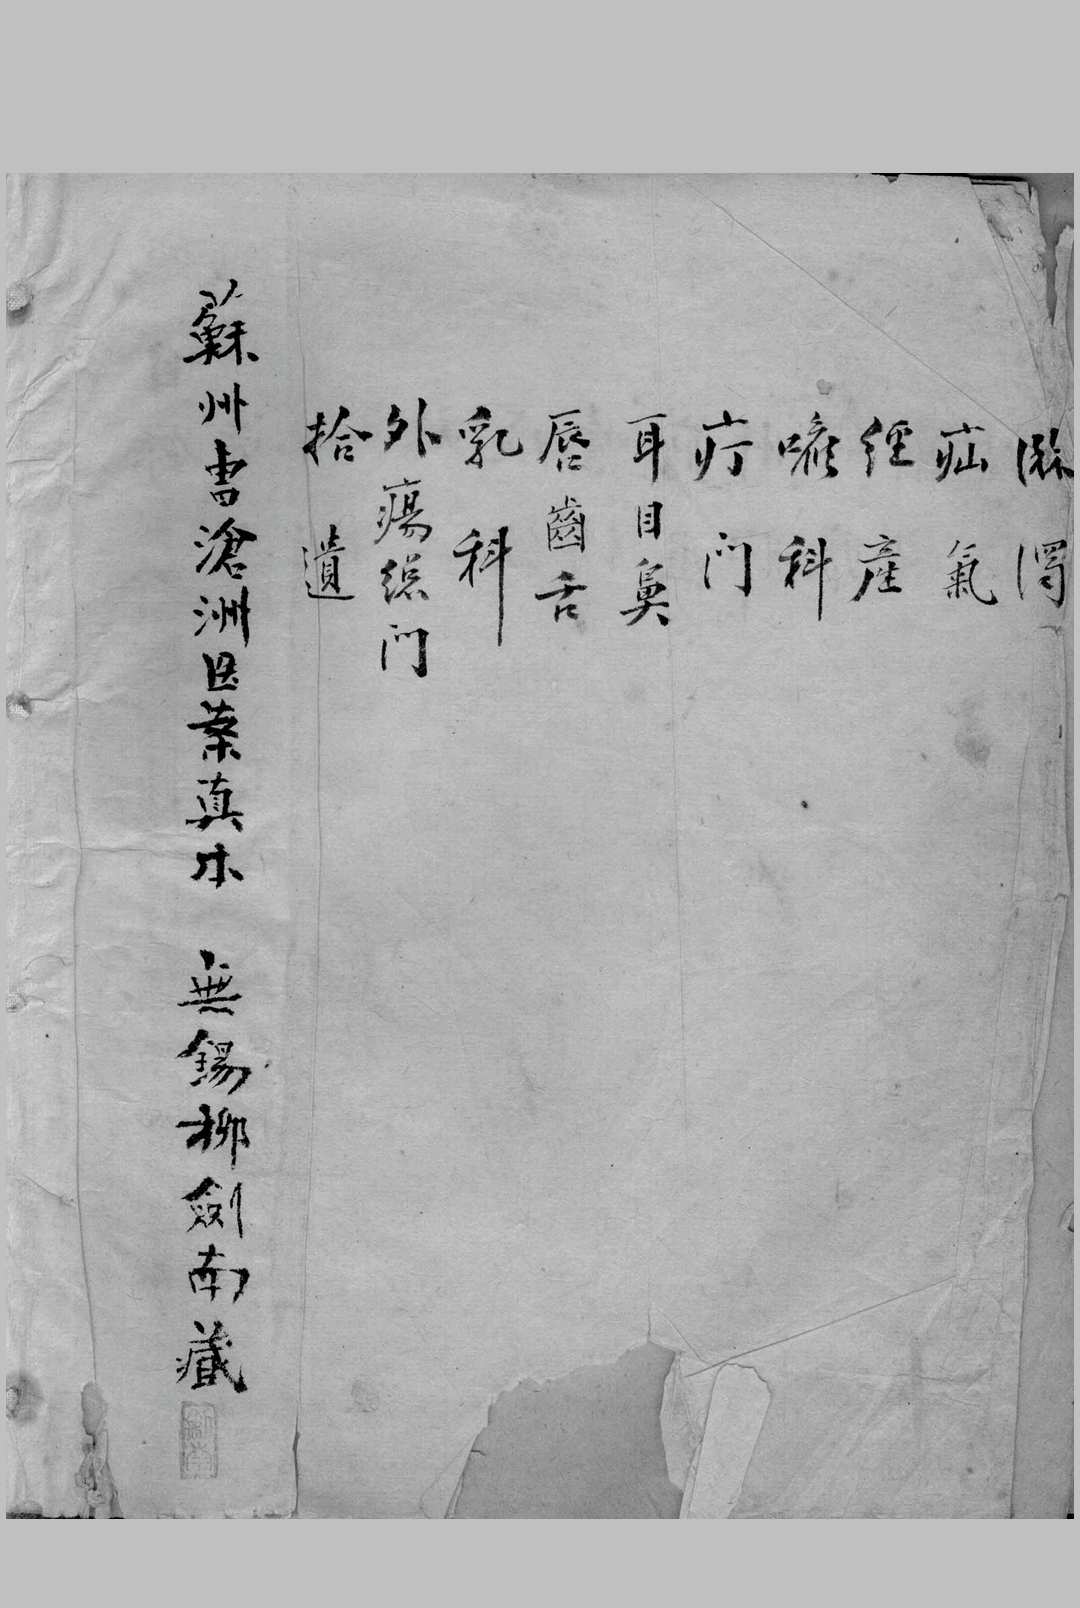 淋濁
疝氣
經產
喉科
疔门
耳目鼻
唇齒舌
乳科
外瘍總门
拾遺
蘇州曹滄洲医案真本 無錫柳劍南藏